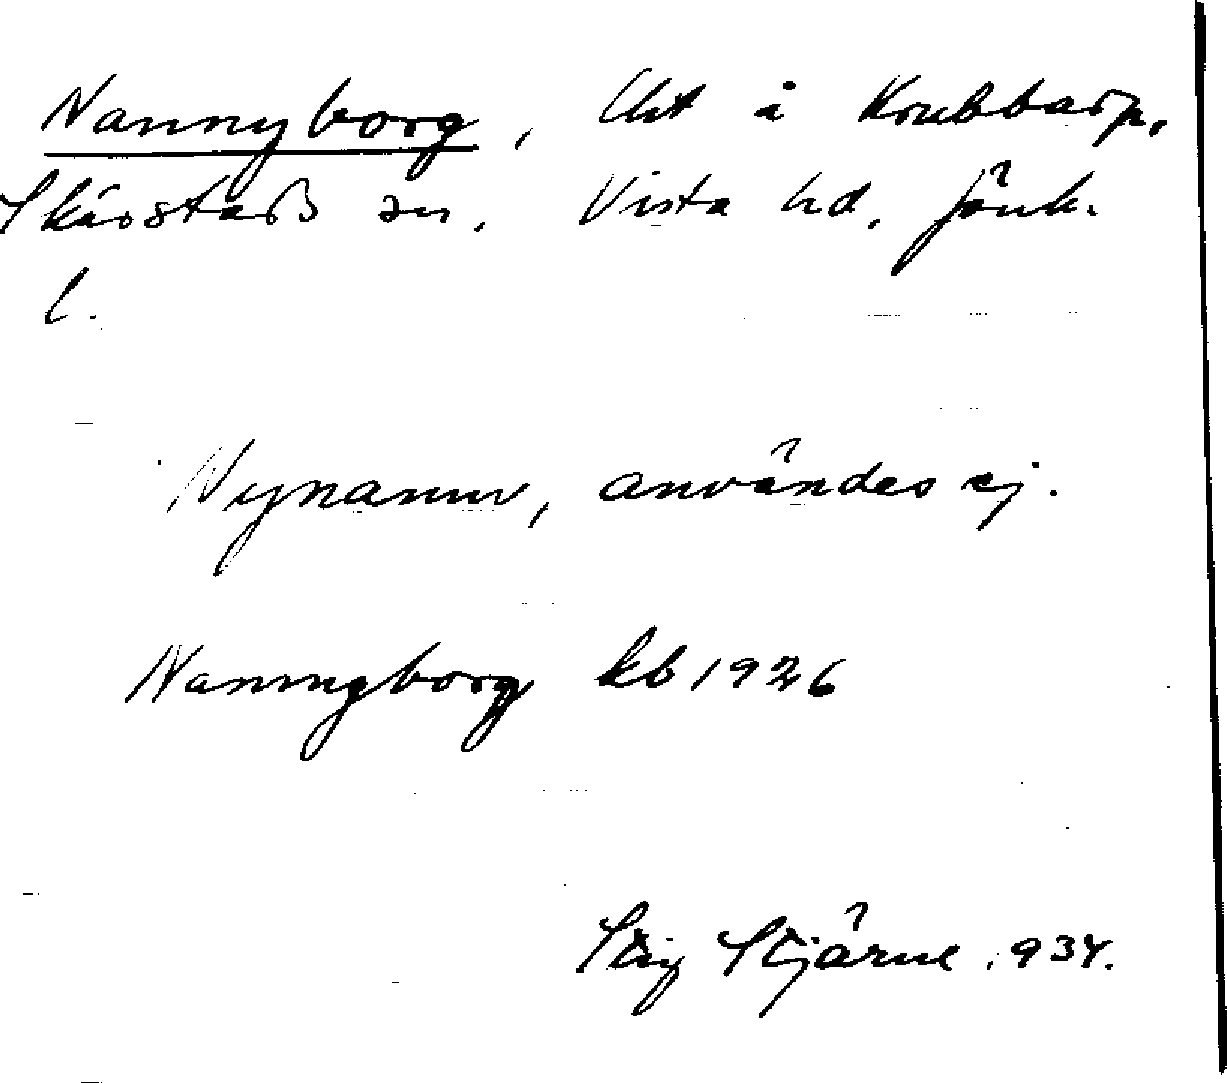 Nannyborg, Lht å Krubbarp,
Skärstads sn, Vista hd, Jönk.
l.
Nynamn, användes ej.
Nannyborg kb 1926
Stig Stjärne 1934.